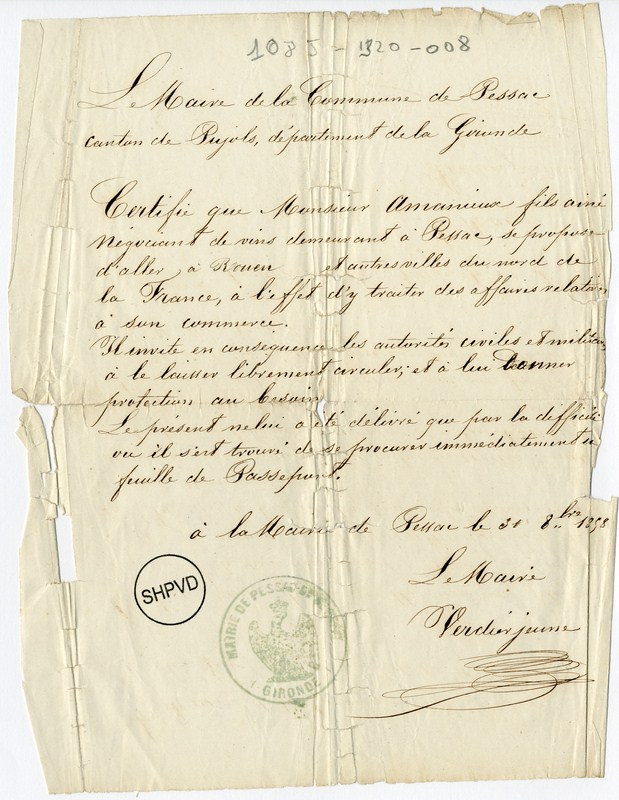 1085 - 1320 - 008
Le Maire de la Commune de Pessac
canton de Pujols, département de la Gironde
Certifie que Monsieur Amanieux fils ainé
Négociant de vins demeurant à Pessac, se propose
d'aller à Rouen et autres villes du nord de
la France, à l'effet d'y traiter des affaires relatives
à son commerce.
Il invite en conséquence les autorités civiles et militaires
à le laisser librement circuler; et à lui donner
protection au besoin
Le présent ne lui a été délivré que par la difficulté
où il s'est trouvé de se procurer immédiatement
feuille de Passeport.
à la Mairie de Pessac le 31 8bre 1858
Le Maire
Verdier jeune
SHPVD
MAIRIE DE PESSAC
GIRONDE